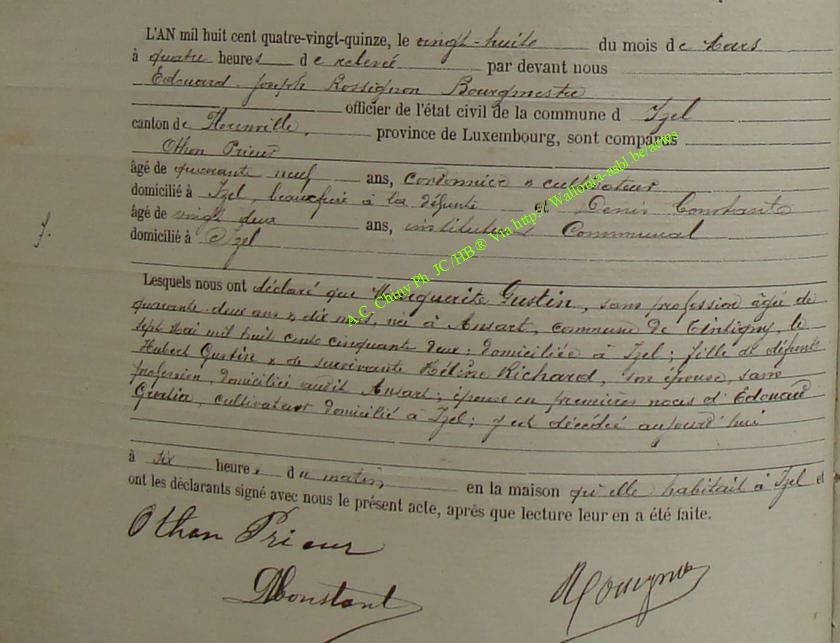 L'AN mil huit cent quatre-vingt-quinze, le vingt-huit du mois de Mars
à quatre heures de relevé par devant nous
Edouard Joseph Rossignon Bourgmestre
officier de l'état civil de la commune d Izel
canton de Florenville, province de Luxembourg, sont comparus
Othon Prieur
âgé de quarante neuf ans, cordonnier & cultivateur
domicilié à Izel, beaufrère à la défunte et Denis Constant
âgé de vingt deux ans, instituteur Communal
domicilié à Izel
f.
Lesquels nous ont déclaré que Marguerite Gustin, sans profession âgée de
quarante-deux ans & dix mois, née à Ansart, commune de Tintigny, le
sept Mai mil huit cent cinquante deux; domiciliée à Izel; fille de défunt
Hubert Gustin & de survivante Hélène Richard, son épouse, sans
profession, domiciliée audit Ansart; épouse en premières noces d'Edouard
cultivateur domicilié à Izel; y est décédée aujourd'hui
à six heures du matin en la maison qu'elle habitait à Izel et
ont les déclarants signé avec nous le présent acte, après que lecture leur en a été faite.
Othon Prieur
DConstant
A.C. Chiny Ph. JC/HB® Via http:// Wallonia-asbl be/actes